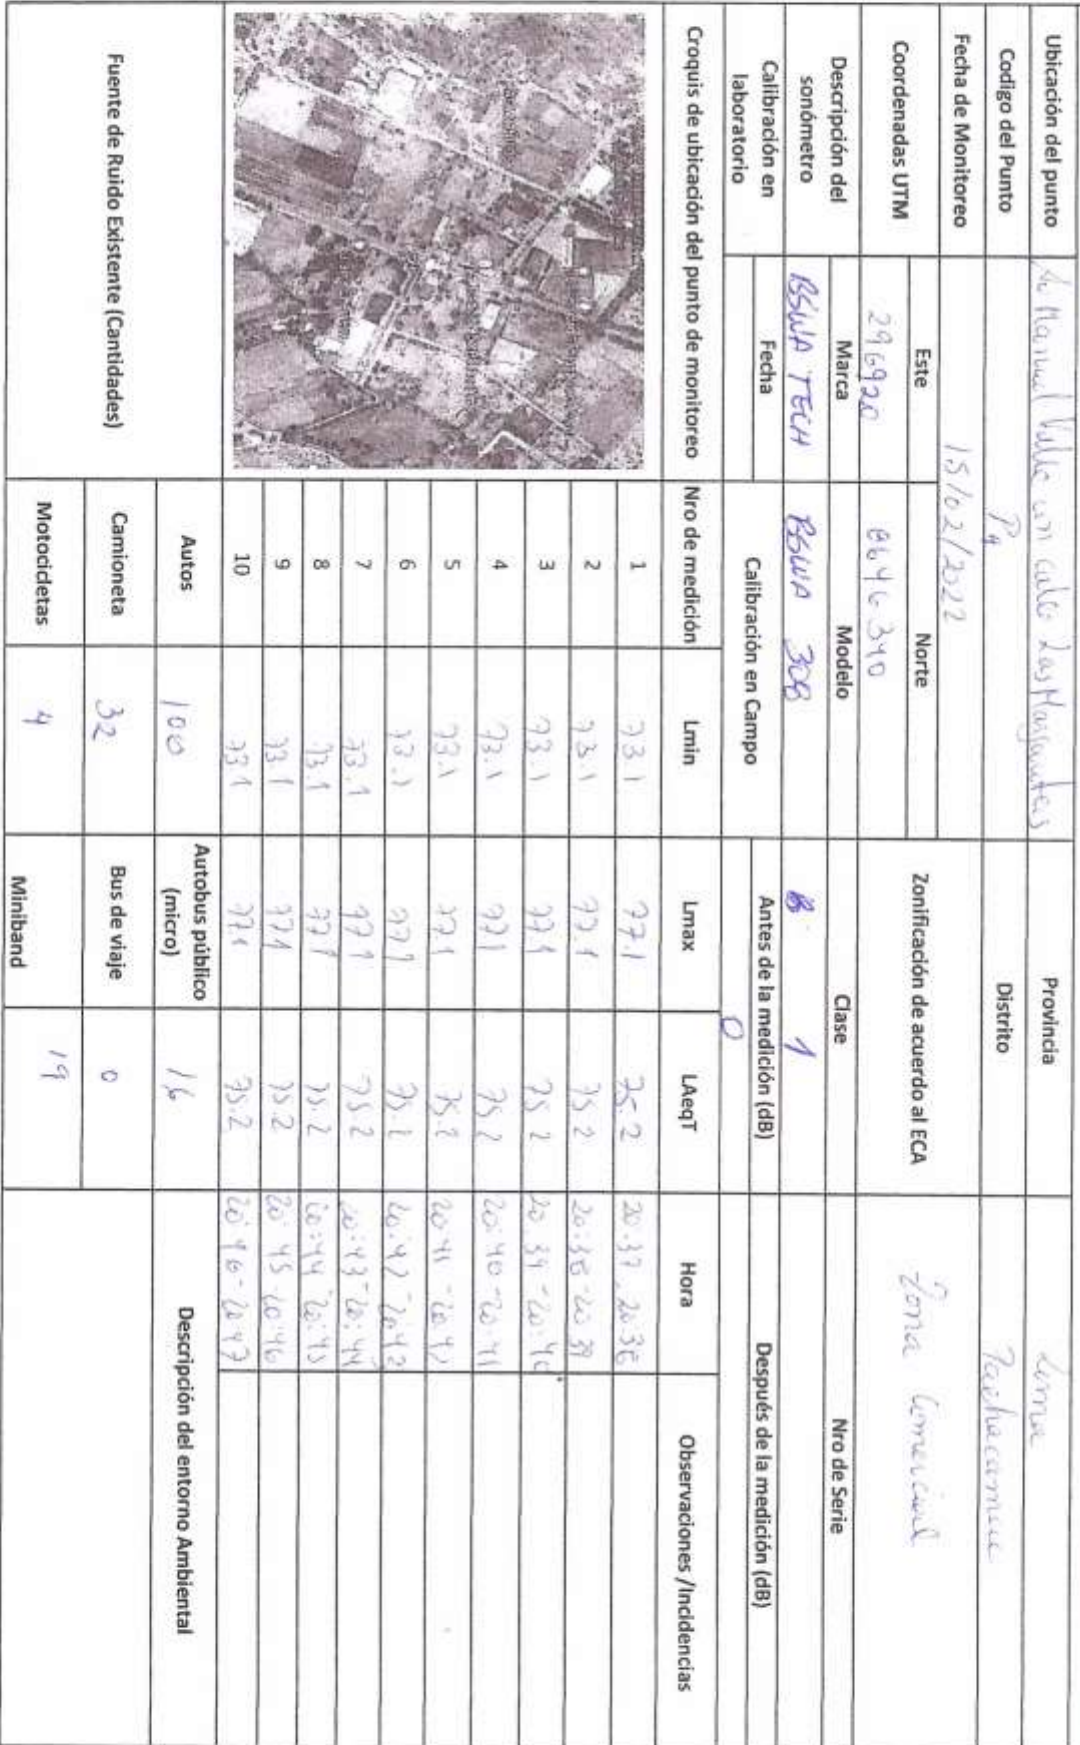 Ubicación del punto Av Manuel Valle con calle Las Margaritas Provincia Lima
Codigo del Punto P4 Distrito Pachacamac
Fecha de Monitoreo 15/02/2022 Zonificación de acuerdo al ECA Zona Comercial
Coordenadas UTM Este Norte
296920 8646340
Descripción del sonómetro Marca Modelo Clase Nro de Serie
BSWA TECH BSWA 308 1
Calibración en laboratorio Fecha Calibración en Campo Antes de la medición (dB) Después de la medición (dB)
0
Croquis de ubicación del punto de monitoreo Nro de medición Lmin Lmax LAeqT Hora Observaciones /Incidencias
1 73.1 77.1 75.2 20:37-20:38
2 73.1 77.1 75.2 20:38-20:39
3 73.1 77.1 75.2 20:39-20:40
4 73.1 77.1 75.2 20:40-20:41
5 73.1 77.1 75.2 20:41-20:42
6 73.1 77.1 75.2 20:42-20:43
7 73.1 77.1 75.2 20:43-20:44
8 73.1 77.1 75.2 20:44-20:45
9 73.1 77.1 75.2 20:45-20:46
10 73.1 77.1 75.2 20:46-20:47
Fuente de Ruido Existente (Cantidades) Autos 100 Autobus público (micro) 16 Descripción del entorno Ambiental
Camioneta 32 Bus de viaje 0
Motocicletas 4 Miniband 19